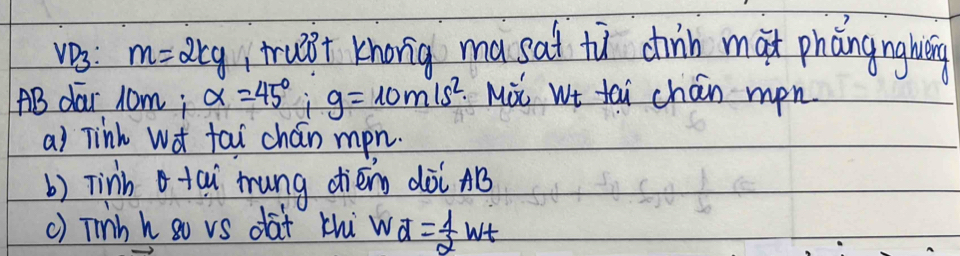 VD3: m=2kg, trượt không ma sát từ đỉnh mặt phẳng nghiêng
AB dài 10m; α=45°; g=10m/s². Mốc Wt tại chân mpn.
a) Tính Wđ tại chân mpn.
b) Tính v tại trung điểm dối AB
c) Tính h so vs đất khi Wđ=1/2 Wt